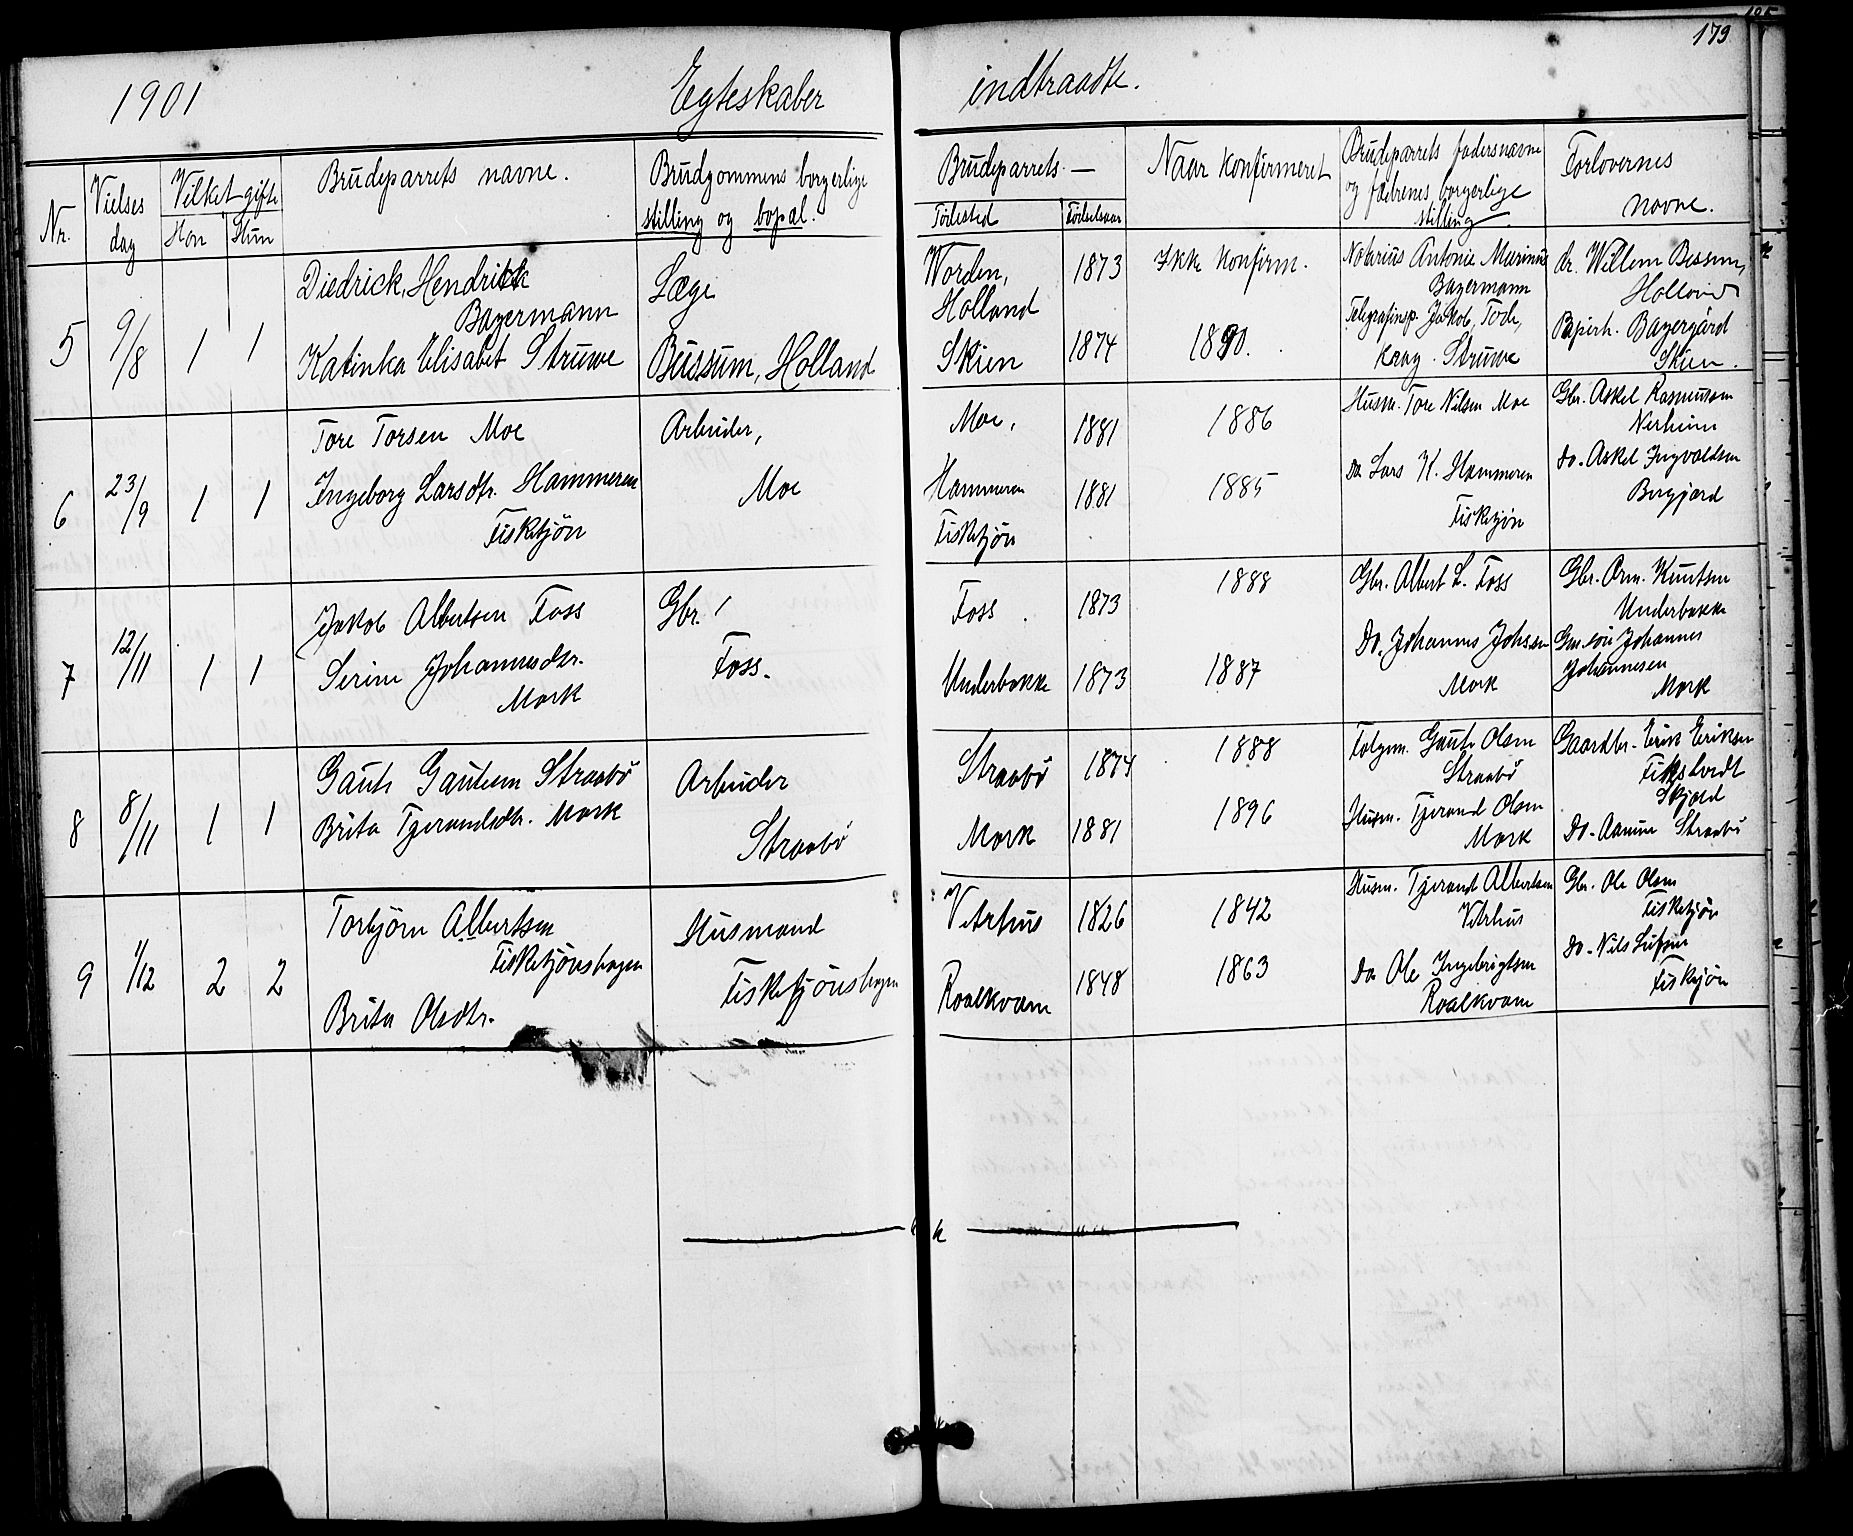 179
1901 Egteskaber indtraadte.
Nr. Vielses dag Vilket gifte Han Hun Brudeparrets navne. Brudgommens borgerlige stilling og bopæl. Brudeparrets — Födested Födselsaar Naar Konfirmeret Brudeparrets fadersnavne og fædrenes borgerlige stilling. Forlovernes navne.
5 9/8 1 1
Diedrick, Hendrick
Bayermann
Katinka Elisabet Struwe
Læge
Bussum, Holland
Worden, 1873 Ikke Konfirm.
Holland
Skien 1874 1890.
Notarius Antonie Murinus
Bayermann
Telegrafinsp. Jakob, Tode,
Krag. Struwe
dr. Willem Bessem,
Holland
Bayergård
Skien.
6 23/9 1 1
Tore Torsen Moe
Ingeborg Larsdtr. Hammeren
Fisketjön
Arbeider,
Moe
Moe, 1881 1886
Hammeren 1881 1885
Fisketjön
Husm. Tore Nilsen Moe
do Lars K. Hammeren
Fisketjön
Gbr. Askel Rasmussen
Nerheim
do. Askel Ingvaldsen
Bergjord
7 12/11 1 1
Jakob Albertsen Foss
Serine Johannesdtr.
Mork
Gbr.
Foss.
Foss 1873 1888
Underbakke 1873 1887
Gbr. Albert L. Foss
Do. Johannes Johsson
Mork
Gbr. Arn. Knutsen
Underbakke
Johannes
Johannesen
Mork
8 8/11 1 1
Gaute Gautesen Straabö
Brita Tjerandsdtr. Mork
Arbeider
Straabö
Straabö 1874 1888
Mork 1881 1896
Folgem. Gaute Olsen
Straabö
Husm. Tjerand Olsen
Mork
Gaardbr. Erik Eriksen
Skjold
Do. Straabö
9 1/12 2 2
Torbjörn Albertsen
Fisketjönshagen
Brita Olsdtr.
Husmand
Fisketjönshagen
Vetrhus 1826 1842
Roalkvam 1848 1863
Husm. Tjerand Albertsen
Vetrhus
Do Ole Ingebrigtsen
Roalkvam
Gbr. Ole Olsen
Fisketjön
Do. Nils
Fisketjön